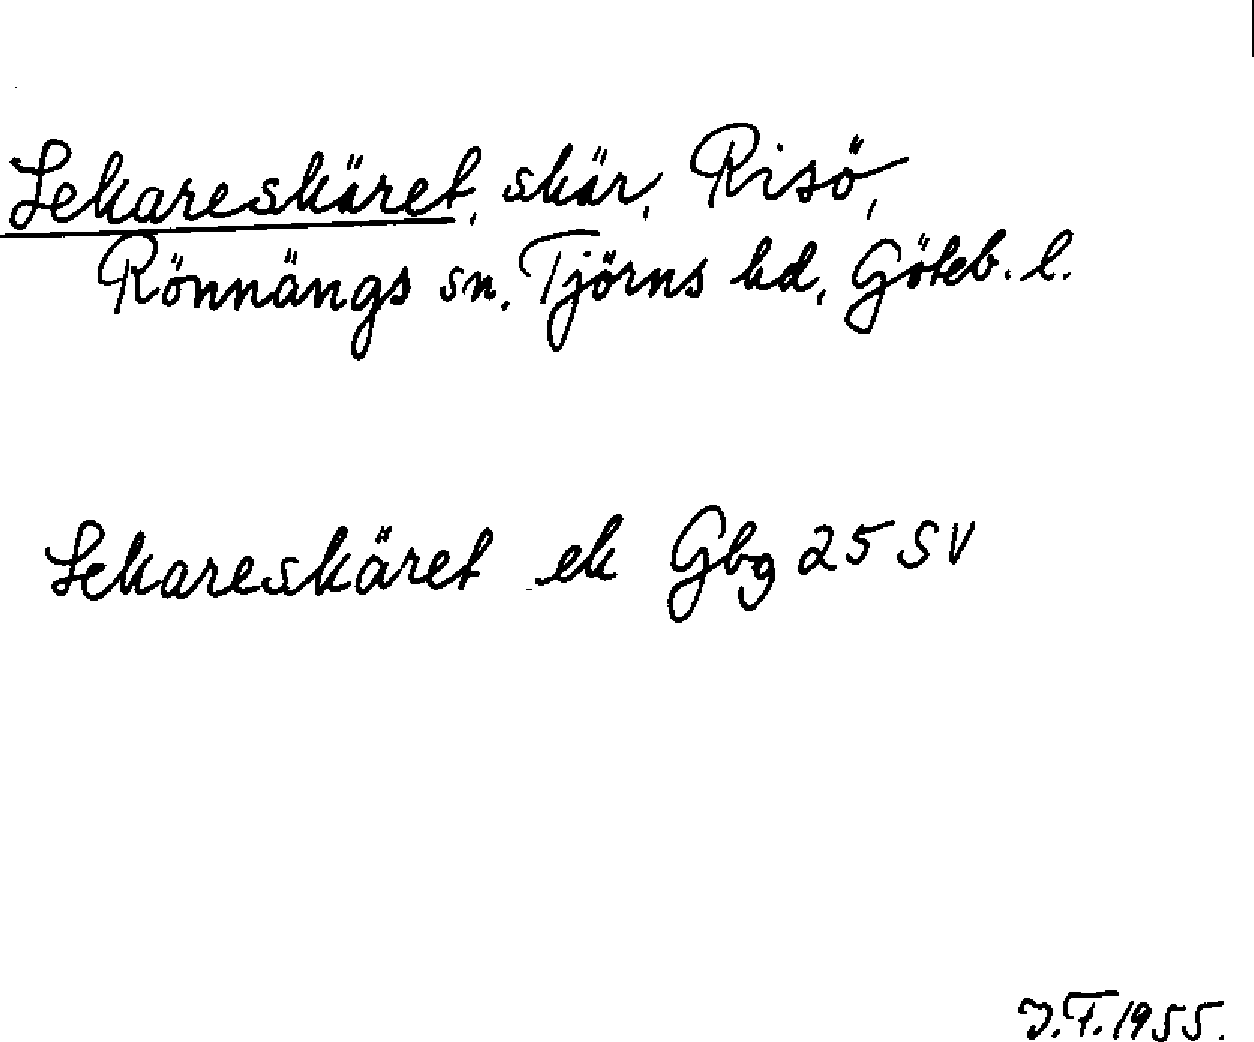 Lekareskäret, skär, Risö,
Rönnängs sn, Tjörns hd, Göteb. l.
Lekareskäret ek Gbg 25 SV
J.F. 1955.